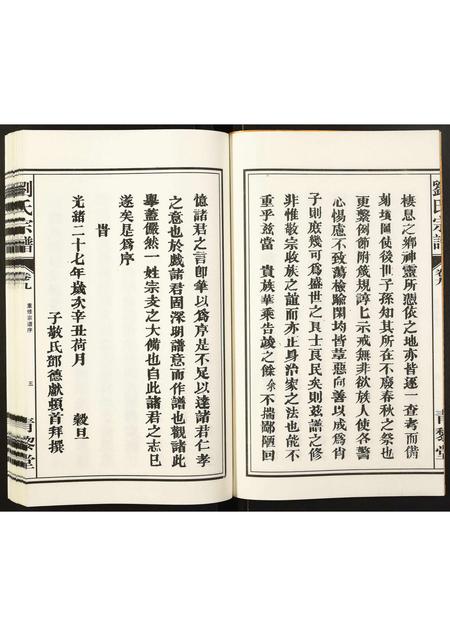 劉氏宗譜
卷九
青黎堂
棲息之鄉神靈所憑依之地亦皆逐一查考而備
刻墳圖使後世子孫知其所在不廢春秋之祭也
更繫例節附箴規諄七示戒無非欲族人使各警
心惕慮不致蕩檢踰閑均皆葸惡向善以成為肖
子則庶幾可為盛世之良士良民矣則茲譜之修
非惟敬宗收族之誼而亦正身治家之法也能不
重乎茲當 貴族華乘告竣之餘余不揣鄙陋回
憶諸君之言卽筆以為序是不足以達諸君仁孝
之意也於戲諸君固深明譜意而作譜也觀諸此
舉蓋儼然一姓宗支之大備也自此諸君之志已
遂矣是為序
旹
光緒二十七年歲次辛丑荷月 榖旦
子敬氏鄧德獻頓首拜撰
劉氏宗譜
卷九
重修宗譜序
五
青黎堂